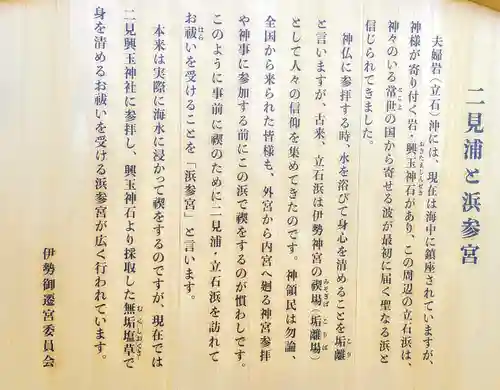 二見浦と浜参宮
夫婦岩（立石）沖には、現在は海中に鎮座されていますが、
神様が寄り付く岩・興玉神石があり、この周辺の立石浜は、
神々のいる常世の国から寄せる波が最初に届く聖なる浜と
信じられてきました。
神仏に参拝する時、水を浴びて身心を清めることを垢離
と言いますが、古来、立石浜は伊勢神宮の禊場（垢離場）
として人々の信仰を集めてきたのです。神領民は勿論、
全国から来られた皆様も、外宮から内宮へ廻る神宮参拝
や神事に参加する前にこの浜で禊をするのが慣わしです。
このように事前に禊のために二見浦・立石浜を訪れて
お祓いを受けることを「浜参宮」と言います。
本来は実際に海水に浸かって禊をするのですが、現在では
二見興玉神社に参拝し、興玉神石より採取した無垢塩草で
身を清めるお祓いを受ける浜参宮が広く行われています。
伊勢御遷宮委員会